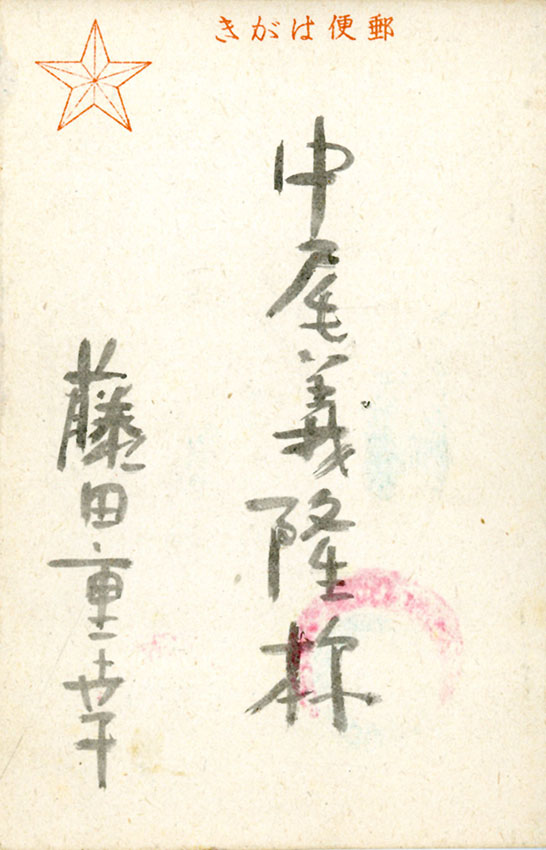 郵便はがき
中尾義隆様
藤田重幸